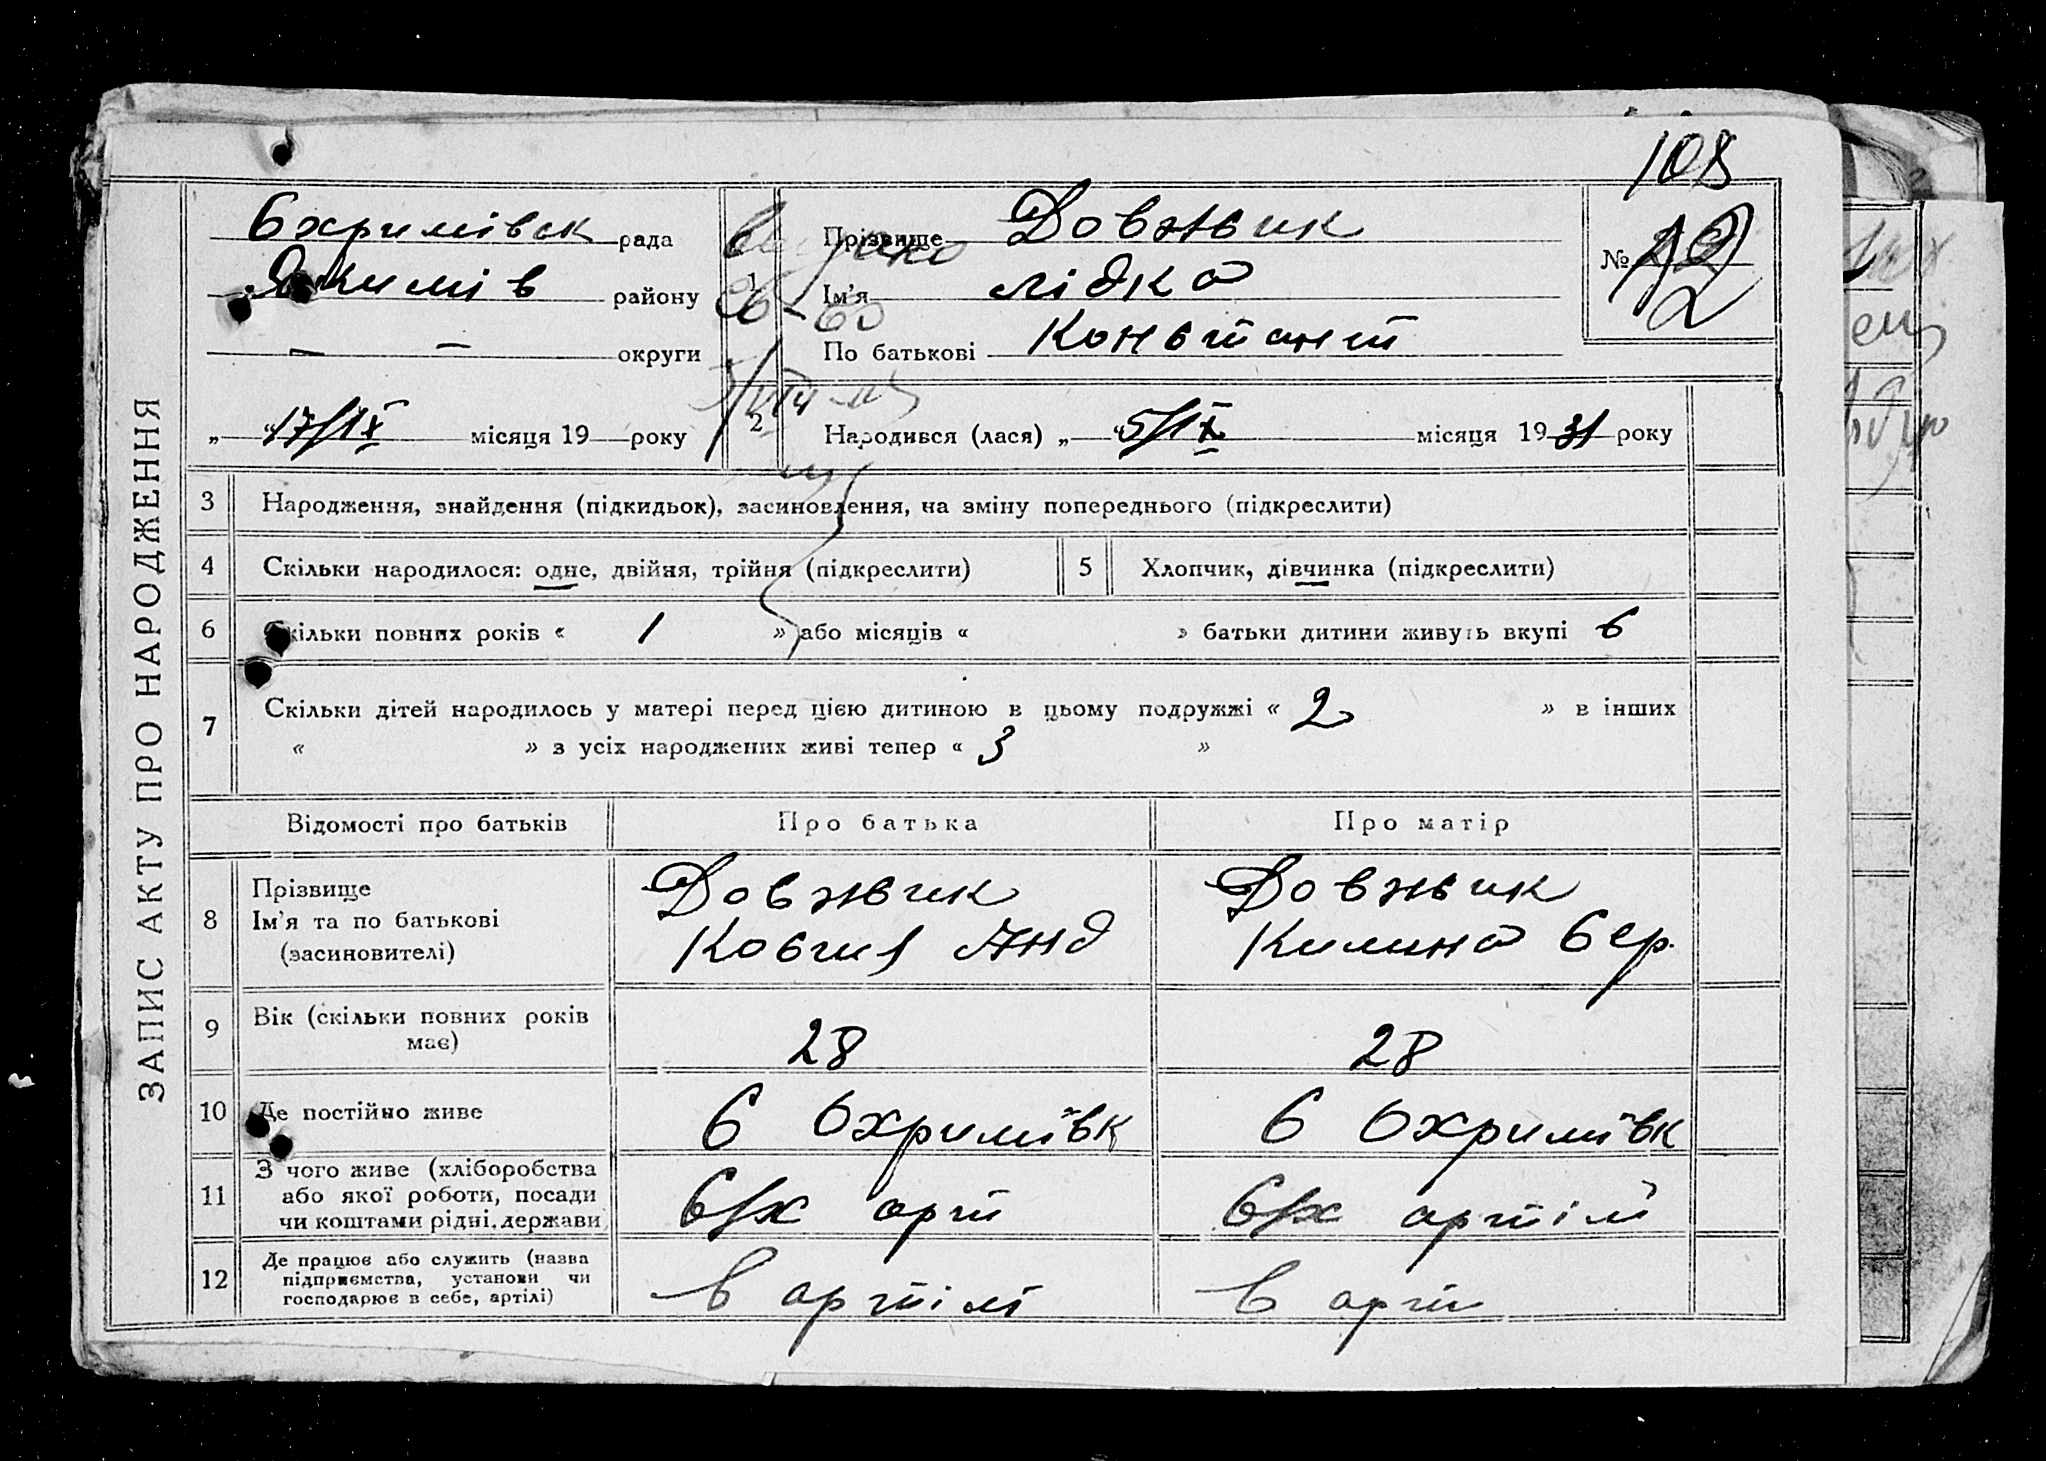 108
ЗАПИС АКТУ ПРО НАРОДЖЕННЯ
Охримівск рада
Якимів району
— — округи
„ 17/IX місяця 19 року
1
Прізвище Довжик
Ім'я Лідка
По батькові Констант
№ 12
2
Народився (лася) „ 5/IX місяця 19 31 року
3 Народження, знайдення (підкидьок), засиновлення, на зміну попереднього (підкреслити)
4 Скільки народилося: одне, двійня, трійня (підкреслити)
5 Хлопчик, дівчинка (підкреслити)
6 Скільки повних років « 1 » або місяців « » батьки дитини живуть вкупі 6
7 Скільки дітей народилось у матері перед цією дитиною в цьому подружжі « 2 » в інших
« » з усіх народжених живі тепер « 3 »
Відомості про батьків Про батька Про матір
8 Прізвище
Ім'я та по батькові
(засиновителі)
Довжик
Анд
Довжик
Килина
9 Вік (скільки повних років
має)
28 28
10 Де постійно живе
в Охримівк в Охримівк
11 З чого живе (хліборобства
або якої роботи, посади
чи коштами рідні, держави
с/х арт с/х артіл
12 Де працює або служить (назва
підприємства, установи чи
господарює в себе, артілі)
в артіл в арт